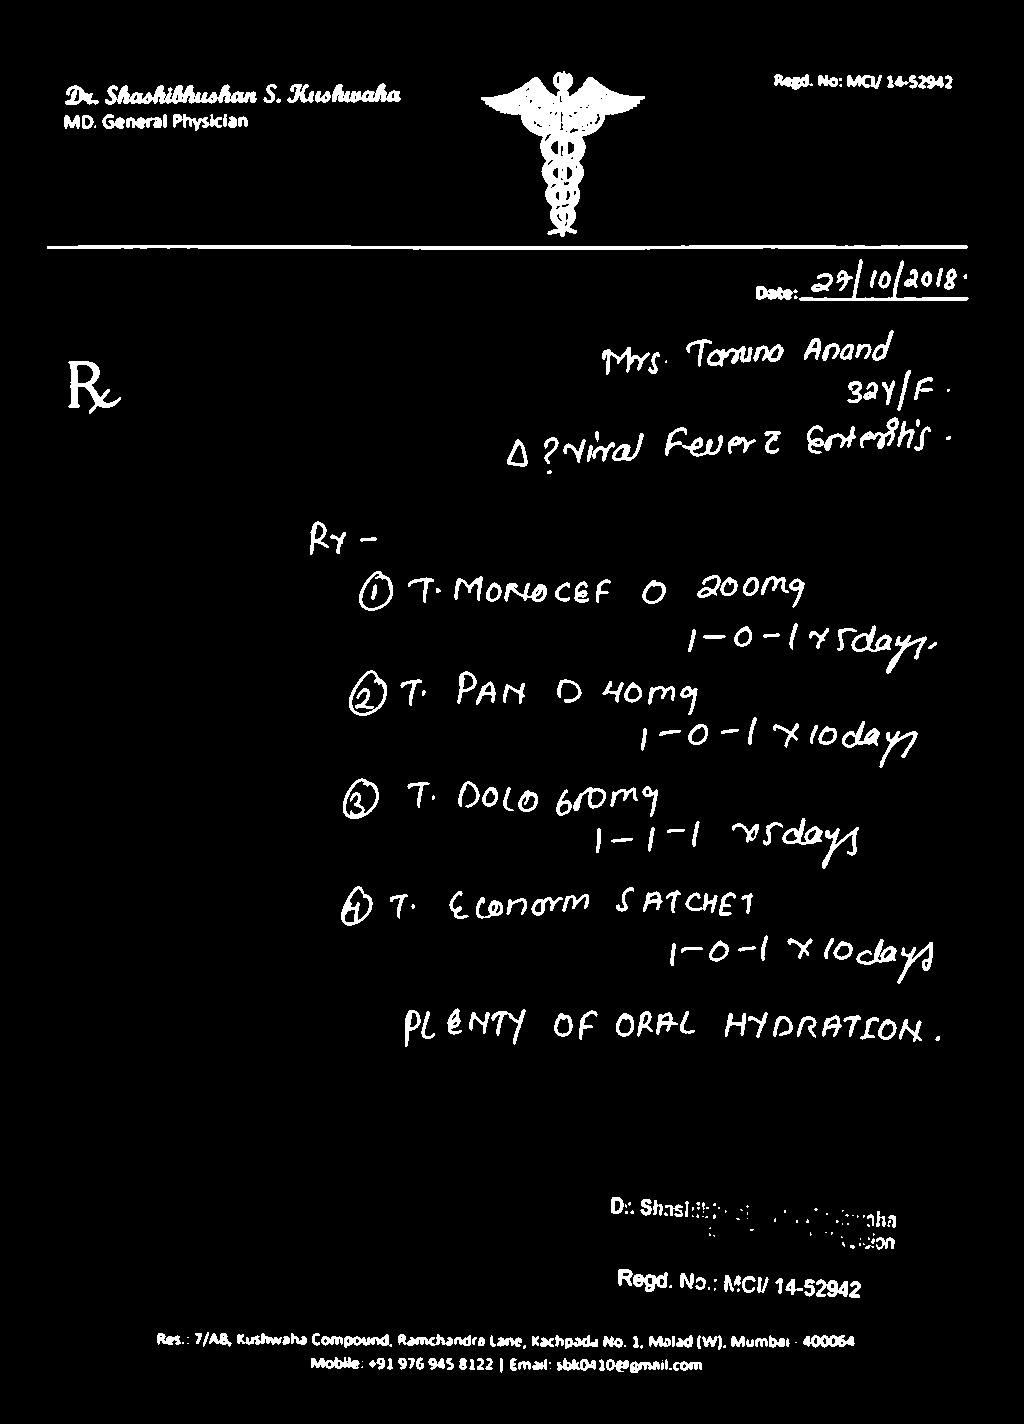 Dr. Shashibhushan S. Kushwaha
MD. General Physician
Regd. No: MCI/ 14-52942
Date: 29/10/2018.
Rx
Mrs. Taruna Anand
32Y/F.
Δ ? Viral Fever c̄ Enteritis.
Rx -
① T. MONOCEF O 200mg
1-0-1 x 5days.
② T. PAN D 40mg
1-0-1 x 10days
③ T. DOLO 650mg
1-1-1 x 5days
④ T. Econorm SATCHET
1-0-1 x 10days
PLENTY OF ORAL HYDRATION.
Dr.
Regd. No.: MCI/ 14-52942
Res.: 7/AB, Kushwaha Compound, Ramchandra Lane, Kachpada No. 1, Malad (W), Mumbai - 400064
Mobile: +91 976 945 8122 | Email: sbk0410@gmail.com